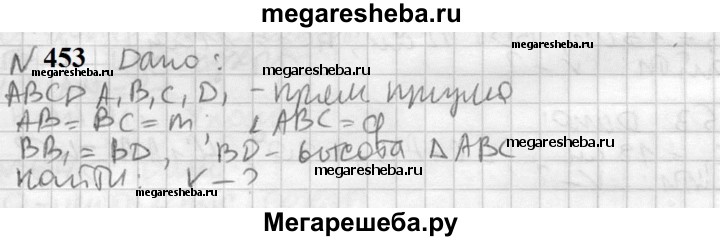 megaresheba.ru
N 453 Дано:
megaresheba.ru megaresheba.ru
ABCD A₁B₁C₁D₁ - прям призма
AB = BC = m, ∠ABC = φ
BB₁ = BD, BD - высота ΔABC
найти: V - ?
megaresheba.ru megaresheba.ru
Мегарешеба.ру